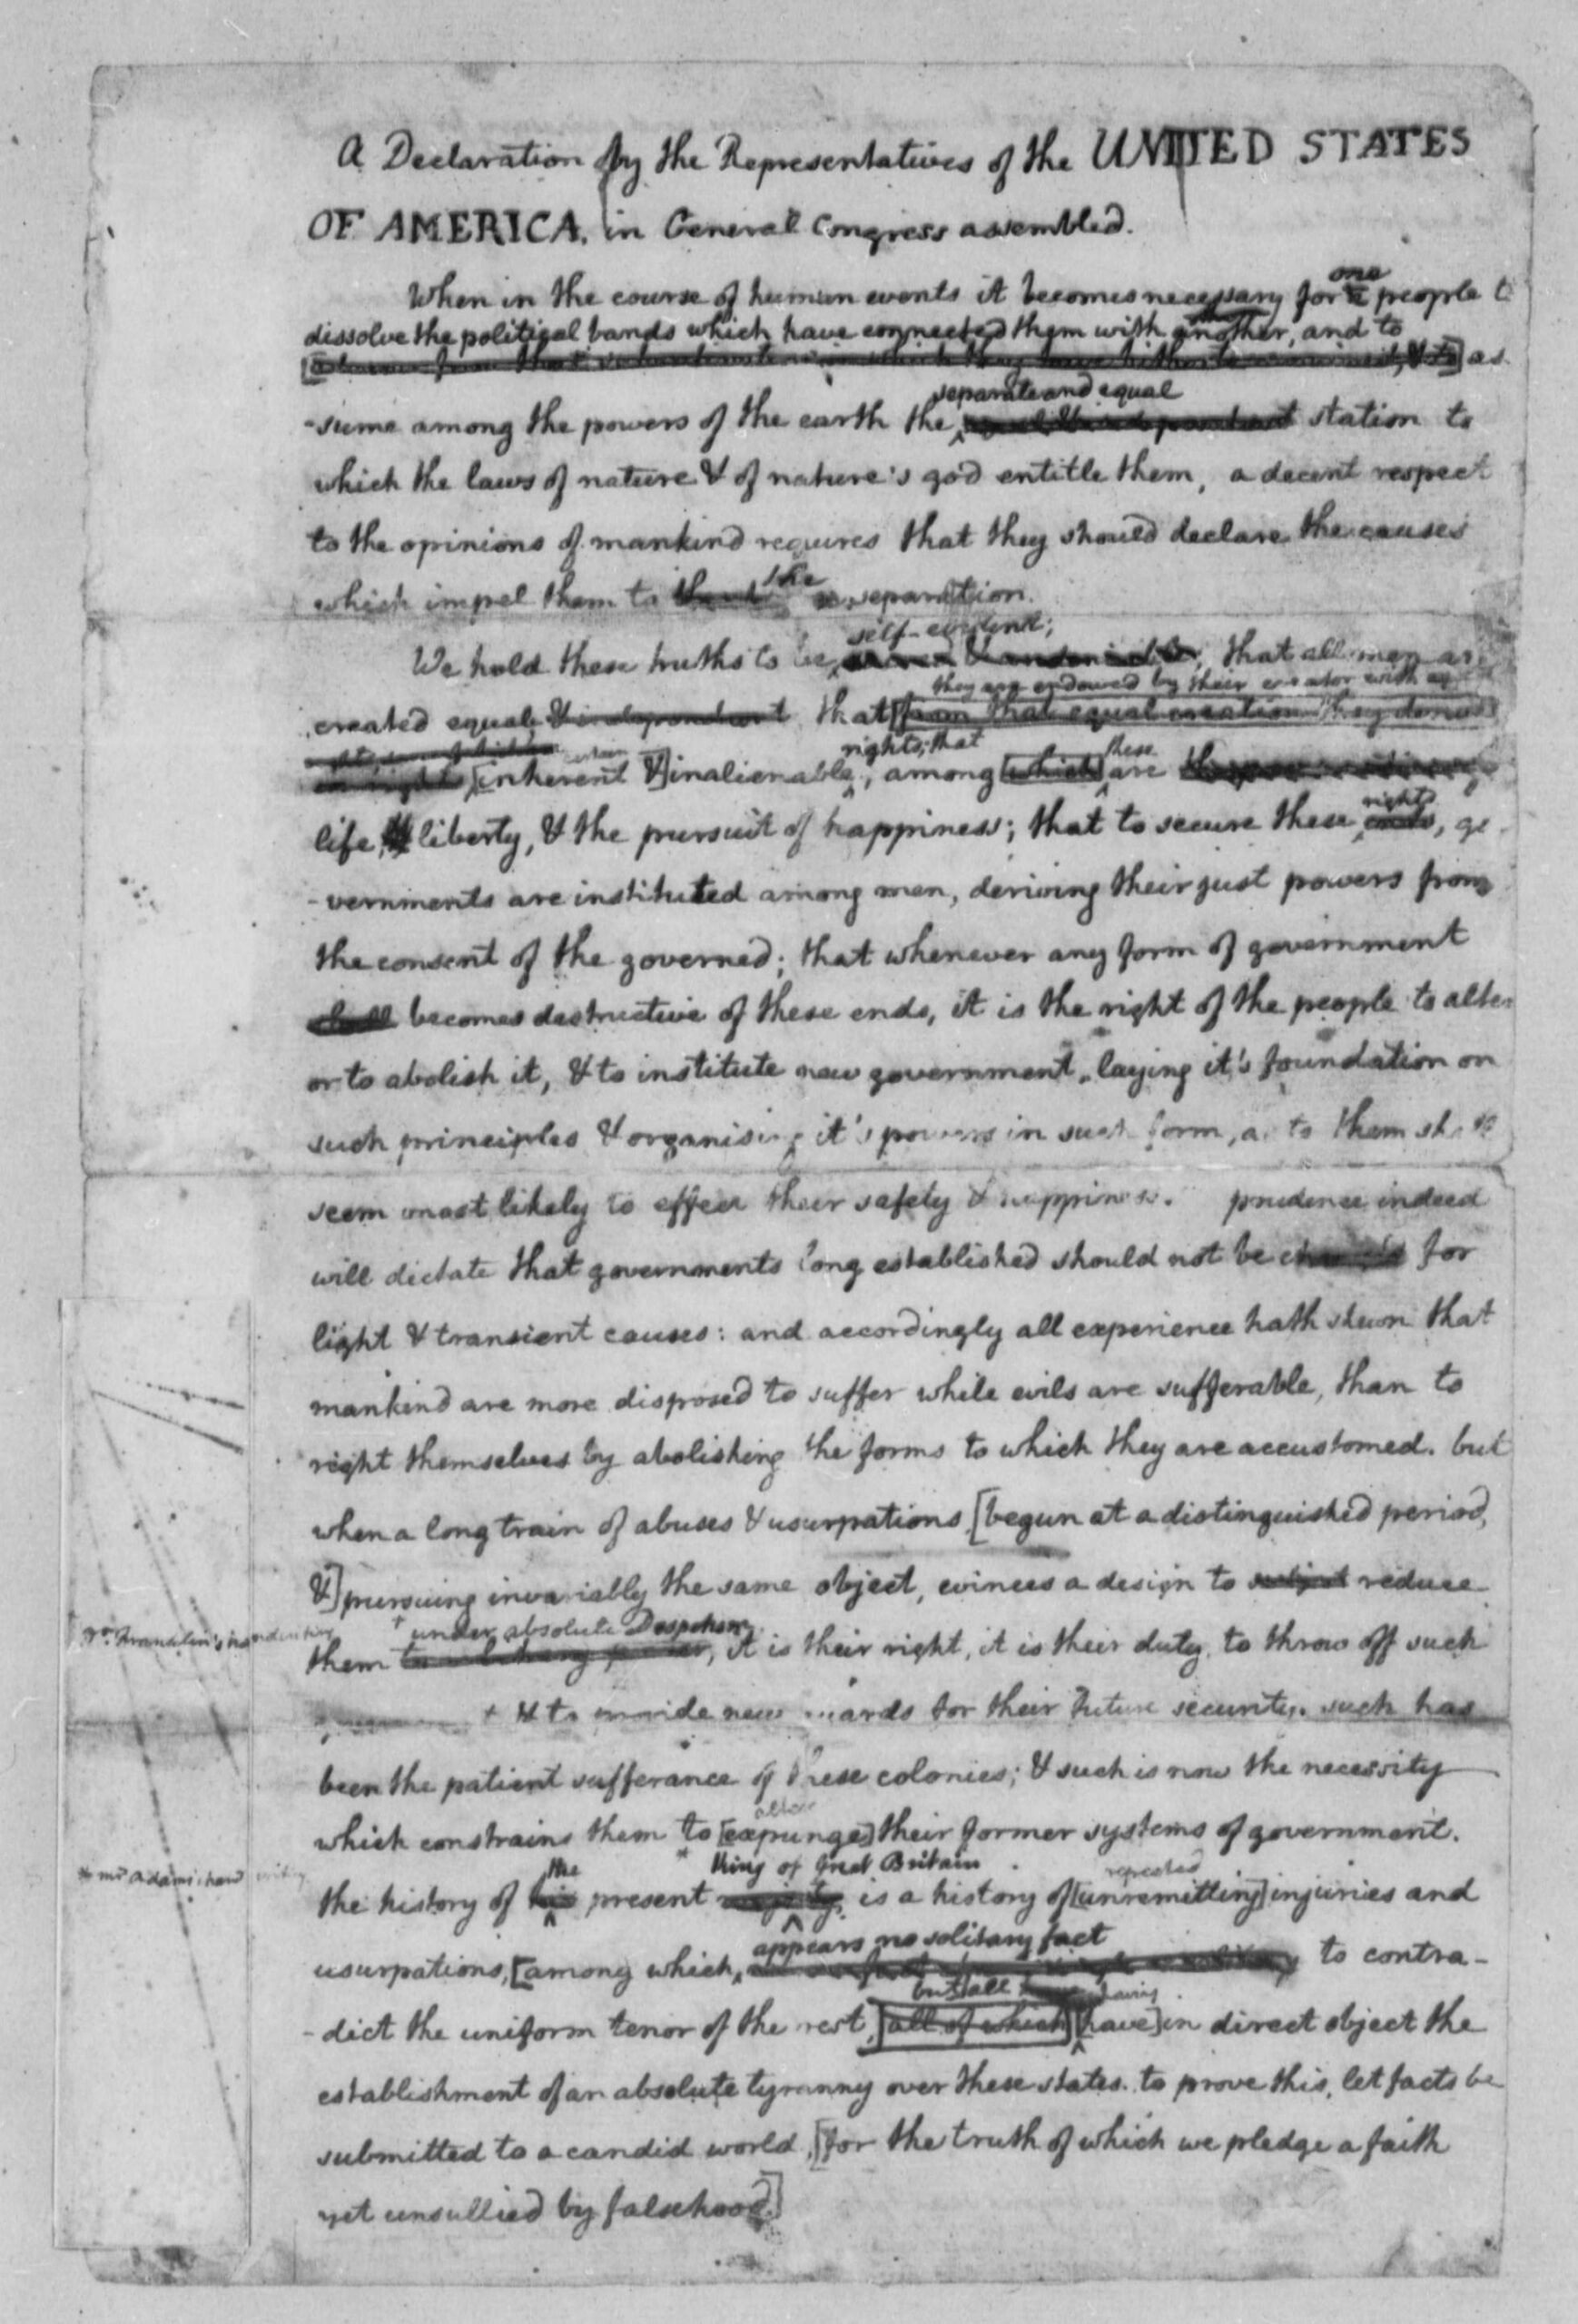 A Declaration by the Representatives of the UNITED STATES
OF AMERICA, in General Congress assembled.
When in the course of human events it becomes necessary for one people t
dissolve the political bands which have connected them with another, and to
as
separate and equal
-sume among the powers of the earth the station to
which the laws of nature & of nature's god entitle them, a decent respect
to the opinions of mankind requires that they should declare the causes
the
which impel them to separation.
self-evident;
We hold these truths to be that all men ar
they are endowed by their creator with
created equal & independent that [from that equal creation they
rights; that these
certain
[inherent &] inalienable, among [which] are
rights
life, liberty, & the pursuit of happiness; that to secure these ends, go
-vernments are instituted among men, deriving their just powers from
the consent of the governed; that whenever any form of government
shall becomes destructive of these ends, it is the right of the people to alter
or to abolish it, & to institute new government, laying it's foundation on
such principles & organising it's powers in such form, as to them shall
seem most likely to effect their safety & happiness. prudence indeed
will dictate that governments long established should not be changed for
light & transient causes: and accordingly all experience hath shewn that
mankind are more disposed to suffer while evils are sufferable, than to
right themselves by abolishing the forms to which they are accustomed. but
when a long train of abuses & usurpations [begun at a distinguished period,
&] pursuing invariably the same object, evinces a design to subject reduce
Dr. Franklin's handwriting
+ under absolute Despotism
them it is their right, it is their duty, to throw off such
+ & to provide new guards for their future security. such has
been the patient sufferance of these colonies; & such is now the necessity
alter
which constrains them to [expunge] their former systems of government.
* Mr Adams' hand writing
the * King of Great Britain repeated
the history of his present is a history of [unremitting] injuries and
appears no solitary fact
usurpations, [among which, to contra-
but all having
-dict the uniform tenor of the rest, [all of which] [have] in direct object the
establishment of an absolute tyranny over these states. to prove this, let facts be
submitted to a candid world, [for the truth of which we pledge a faith
yet unsullied by falsehood.]